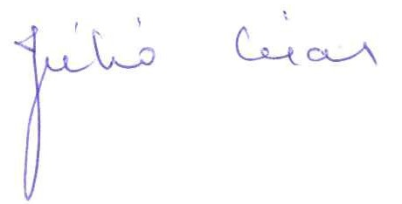 Júlió César